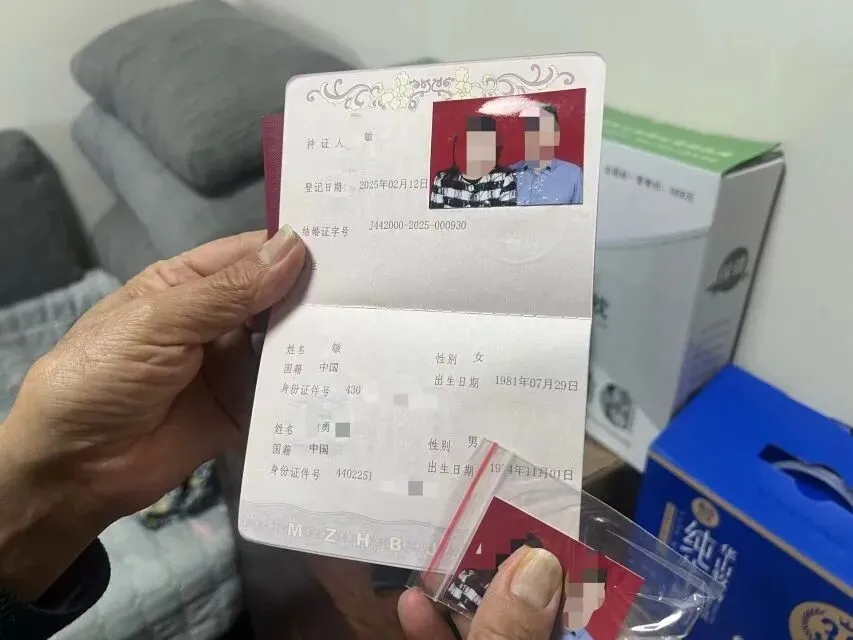 持证人 敏
登记日期 2025年02月12日
结婚证字号 J442000-2025-000930
姓名 敏 性别 女
国籍 中国 出生日期 1981年07月29日
身份证件号 430
姓名 勇 性别 男
国籍 中国 出生日期 11月01日
身份证件号 4402251
MZHB
纯